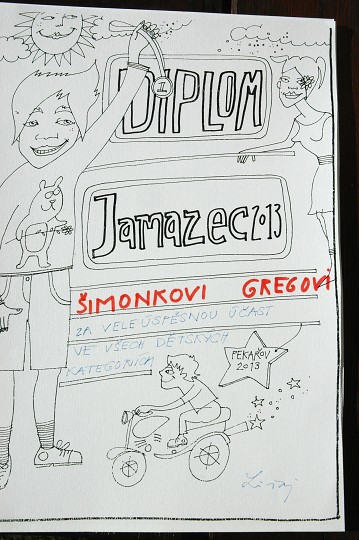 1
DIPLOM
Jamazec 2013
ŠIMONKOVI GREGOVI
ZA VELEÚSPĚSNOU ÚČAST
VE VŠECH DĚTSKÝCH
KATEGORIÍCH
PEKAŘOV
2013